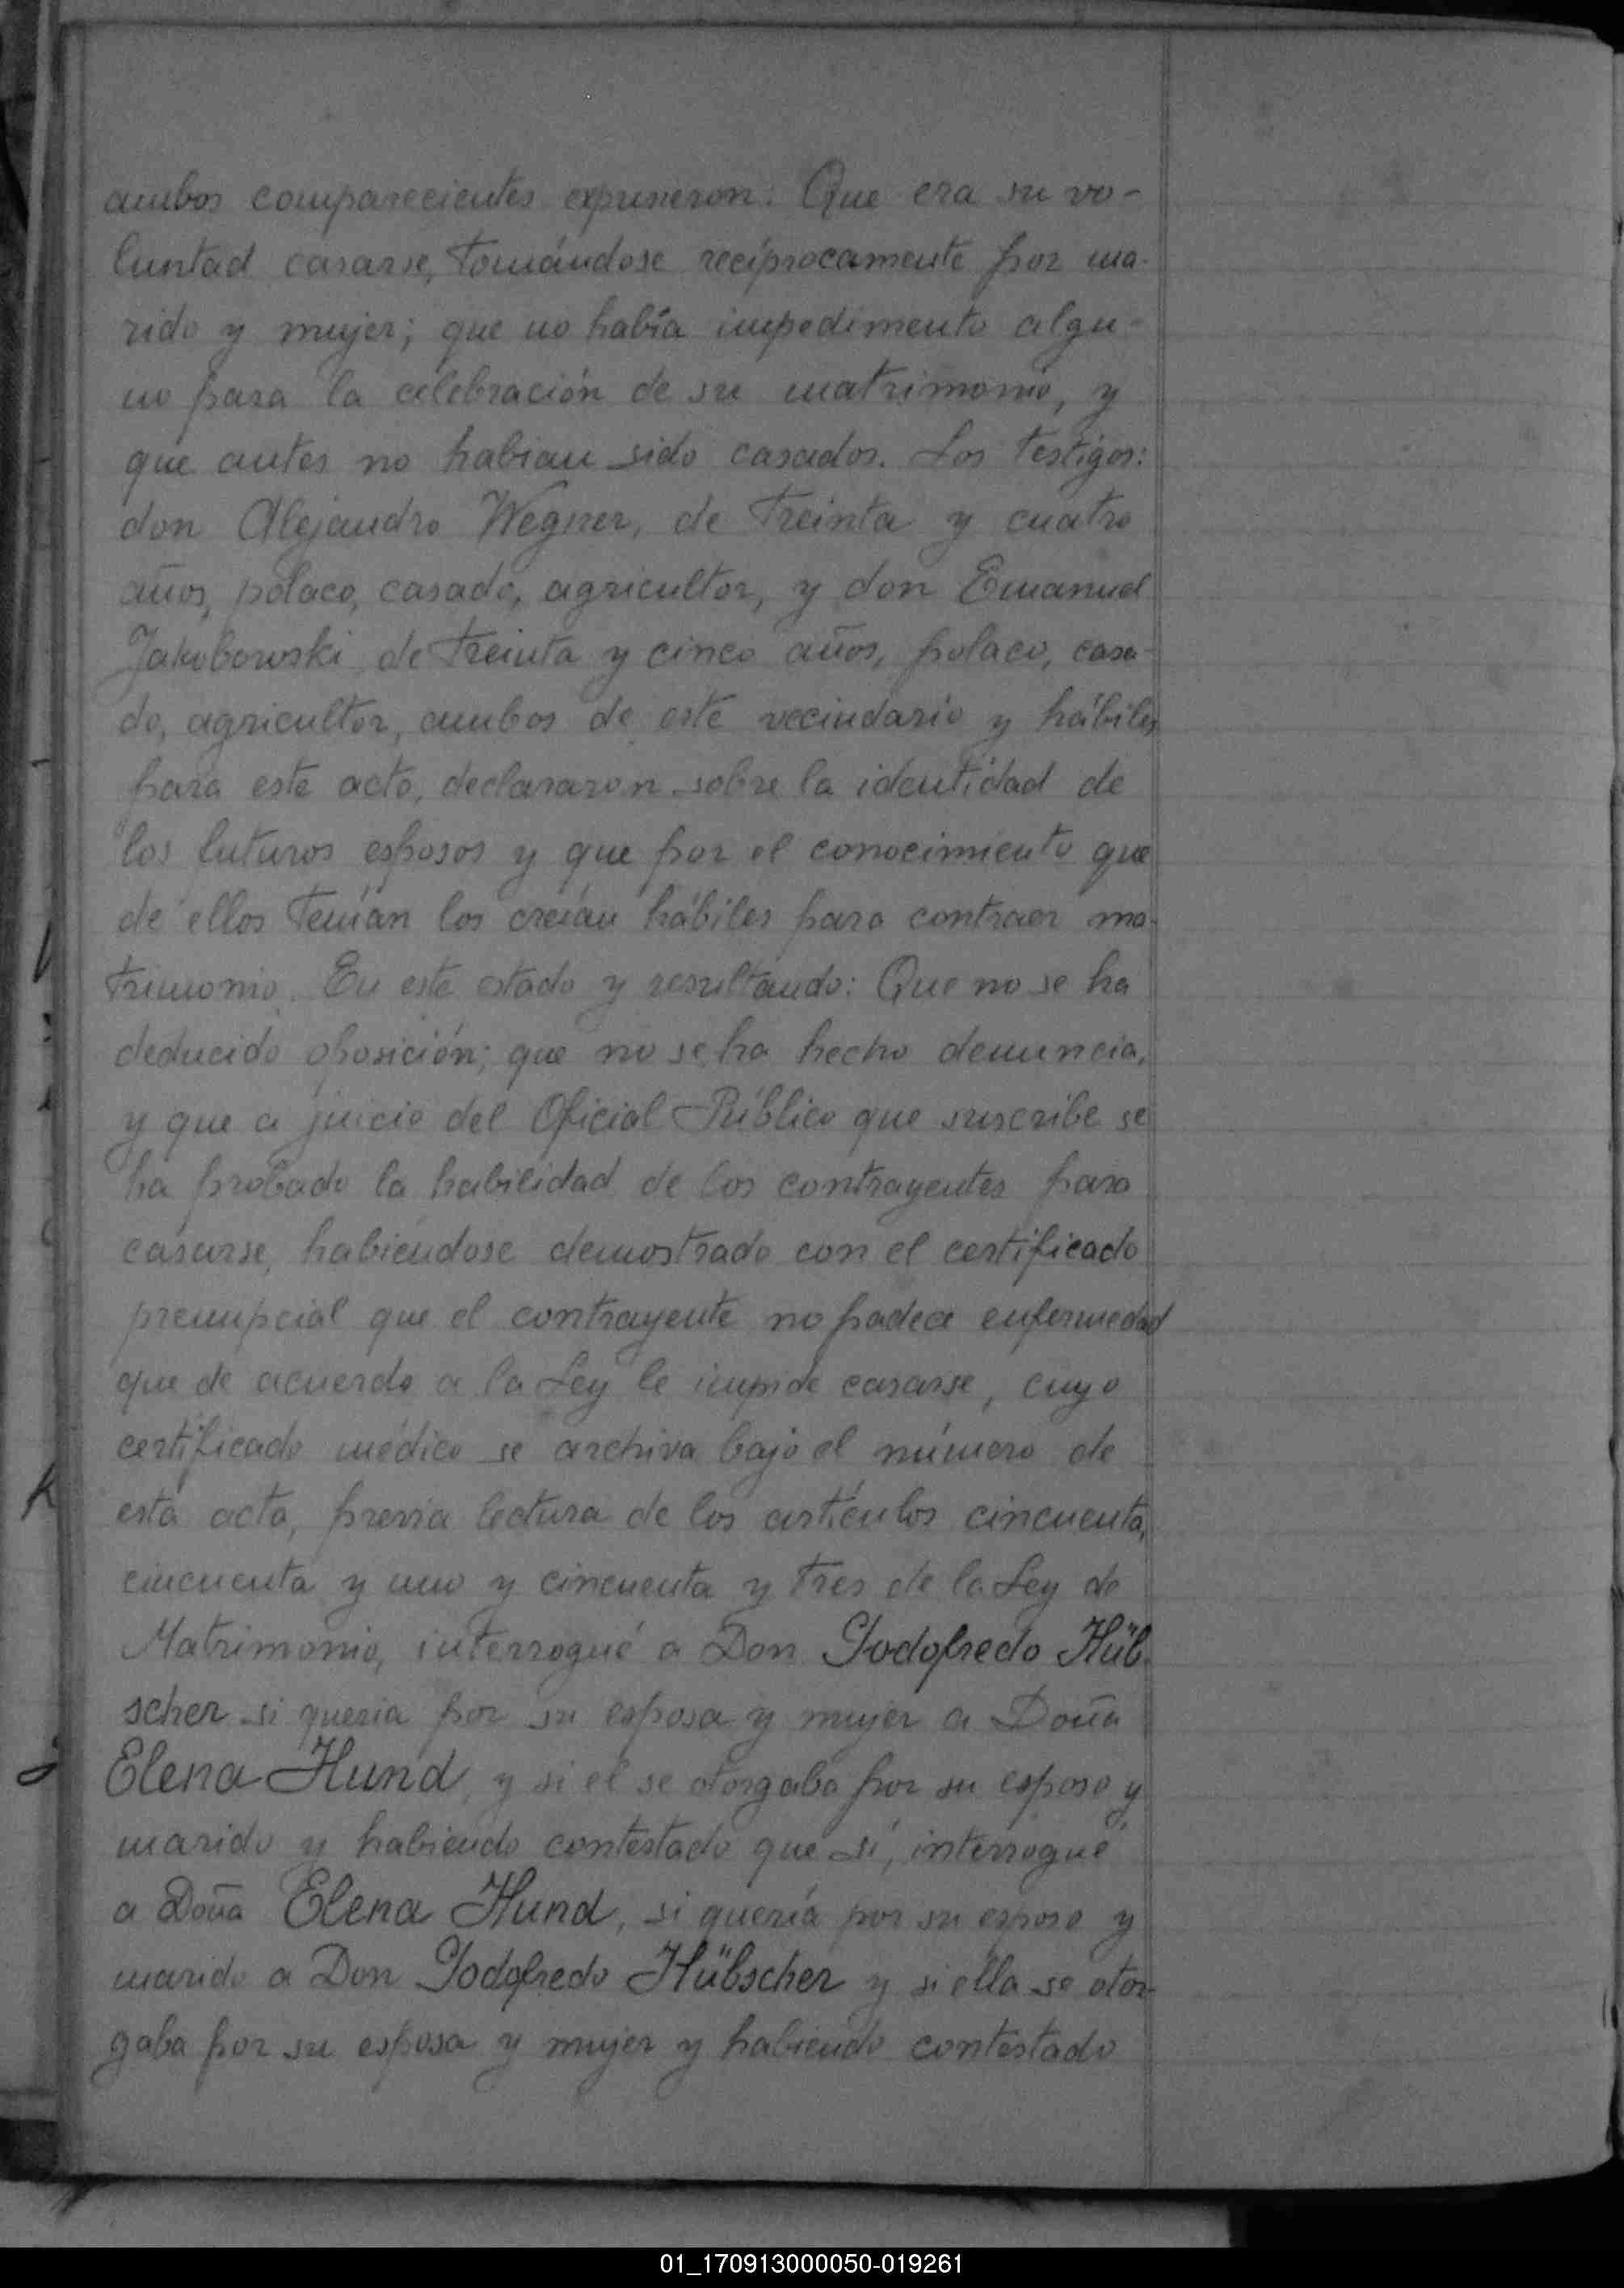 ambos comparecientes expusieron: Que era su vo-
luntad casarse, tomándose recíprocamente por ma-
rido y mujer; que no había impedimento algu-
no para la celebración de su matrimonio, y
que antes no habian sido casados. Los testigos:
don Alejandro Wegner, de treinta y cuatro
años, polaco, casado, agricultor, y don Emanuel
Jakobowski de treinta y cinco años, polaco, casa-
do, agricultor, ambos de este vecindario y hábiles
para este acto, declararon sobre la identidad de
los luturos esposos y que por el conocimiento que
de ellos tenían los creían hábiles para contraer ma-
trimonio. En este estado y resultando: Que no se ha
deducido oposición; que no se ha hecho denuncia,
y que a juicio del Oficial Público que suscribe se
ha probado la habilidad de los contrayentes para
casarse, habiéndose demostrado con el certificado
prenupcial que el contrayente no padece enfermedad
que de acuerdo a la Ley le impide casarse, cuyo
certificado médico se archiva bajo el número de
esta acta, previa lectura de los artículos cincuenta,
cincuenta y uno y cincuenta y tres de la Ley de
Matrimonio, interrogué a Don Godofredo Hüb-
scher si queria por su esposa y mujer a Doña
Elena Hund, y si el se otorgaba por su esposo y
marido y habiendo contestado que sí, interrogué
a Doña Elena Hund, si quería por su esposo y
marido a Don Godofredo Hübscher y si ella se otor-
gaba por su esposa y mujer y habiendo contestado
01_170913000050-019261